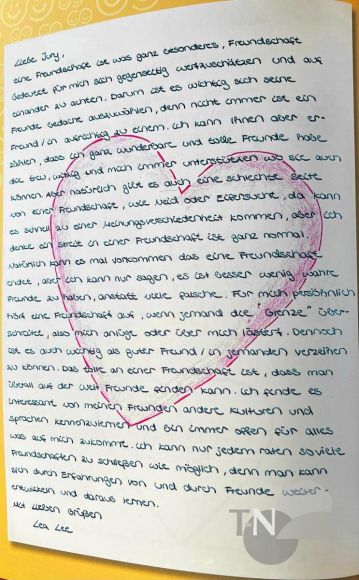 Liebe Jury,
eine Freundschaft ist was ganz besonderes, Freundschaft
bedeutet für mich sich gegenseitig wertzuschätzen und auf
einander zu achten. Darum ist es wichtig sich seine
Freunde bedacht auszuwählen, denn nicht immer ist ein
Freund/in aufrichtig zu einem. Ich kann Ihnen aber er-
zählen, dass ich ganz wunderbare und tolle Freunde habe
die treu, witzig und mich immer unterstützen wo sie auch
können. Aber natürlich gibt es auch eine schlechte Seite
von einer Freundschaft, wie Neid oder Eifersucht, da kann
es schnell zu einer Meinungsverschiedenheit kommen, aber ich
denke ein Streit in einer Freundschaft ist ganz normal.
Natürlich kann es mal vorkommen das eine Freundschaft
endet, aber ich kann nur sagen, es ist besser wenig wahre
Freunde zu haben, anstatt viele falsche. Für mich persöhnlich
hört eine Freundschaft auf, wenn jemand die "Grenze" über-
schreitet, also mich anlüge oder über mich lästert. Dennoch
ist es auch wichtig als guter Freund/in jemanden verzeihen
zu können. Das tolle an einer Freundschaft ist, dass man
überall auf der Welt Freunde finden kann. Ich finde es
interessant von meinen Freunden andere Kulturen und
Sprachen kennenzulernen und bin immer offen für alles
was auf mich zukommt. Ich kann nur jedem raten so viele
Freundschaften zu schließen wie möglich, denn man kann
sich durch Erfahrungen von und durch Freunde weiter-
entwickeln und daraus lernen.
Mit lieben Grüßen
Lea Lee
TN